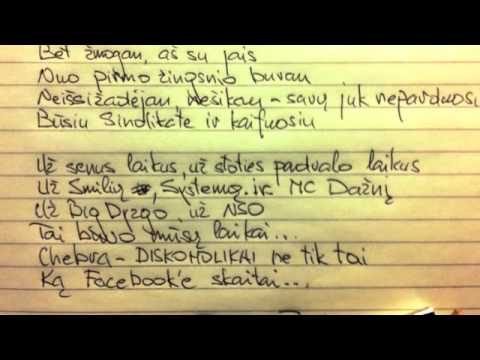 Bet žmogau, aš su jais
Nuo pirmo žingsnio buvau
Neišsižadėjau, nešikau - savų juk neparduosi
Būsiu Sindikate ir kaifuosiu
Už senus laikus, už stoties padvalo laikus
Už Smilių, Systemą ir MC Dažnį
Už Big Dzego, už NŠO
Tai buvo mūsų laikai...
Chebra - DISKOHOLIKAI ne tik tai
Ką Facebook'e skaitai...